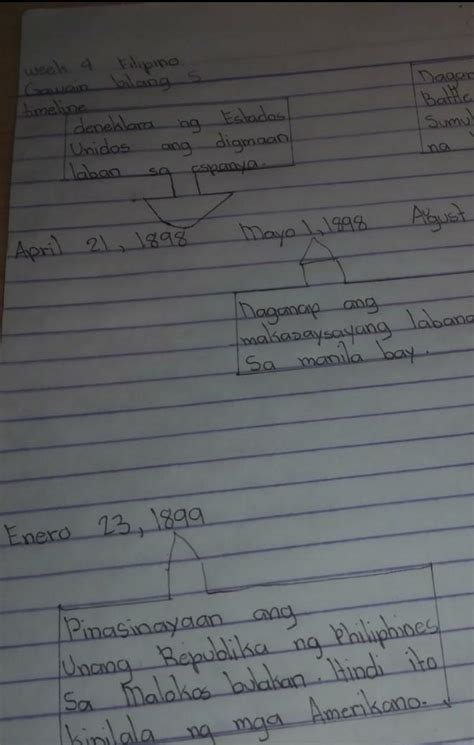 week 4 Filipino
Gawain bilang 5
timeline
deneklara ng Estados
Unidos ang digmaan
laban sa espanya.
Dagan
Battle
Sumul
na
April 21, 1898
Mayo 1, 1898
Agust
Daganap ang
makasaysayang labana
Sa manila bay.
Enero 23, 1899
Pinasinayaan ang
Unang Republika ng Philiphines
Sa Malokos bulakan. Hindi ito
kinilala ng mga Amerikano.